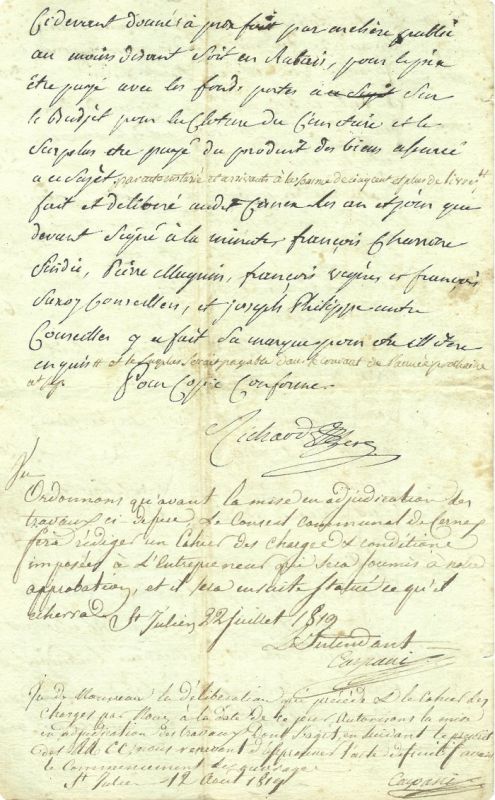 Cidevant donnés à prix fait par enchère publique
au moins disant soit en Rabais, pour le prix
être payé avec les fonds portés au Sujet Sur
le Budjet pour la Cloture du Cimetière et le
Surplus etre payé du produit des biens
a ce Sujet
fait et délibéré audit Cernex les an et jour que
devant Signé à la minute, françois Charriere
Sindic, Pierre Magnin, françois et françois
Conseillers, et Joseph Philippe autre
Conseiller qui a fait Sa marque pour être illitéré
enquis et le Surplus Serait payable dans le courant de l'année prochaine
Pour Copie Conforme
Richard
Vu
Ordonnons qu'avant la mise en adjudication des
travaux ci-dessus, Le Conseil communal de Cernex
fera rédiger un Cahier des Charges & conditions
imposées à L'Entrepreneur qui sera soumis à notre
approbation, et il sera ensuite statué ce qu'il
écherra. St Julien 22 juillet 1819
L'Intendant
Caspani
Vu de Nouveau la délibération qui précède & le Cahier des
Charges par Nous à la date de ce jour, Autorisons la mise
en adjudication des travaux dont s'agit, en suivant le prescrit
des R.R. C.C., nous réservant d'approuver l'acte définitif avant
le Commencement des ouvrages
St Julien 12 Août 1819
Caspani